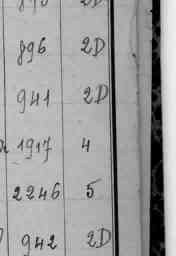 896 2D
941 2D
1917 4
2246 5
942 2D